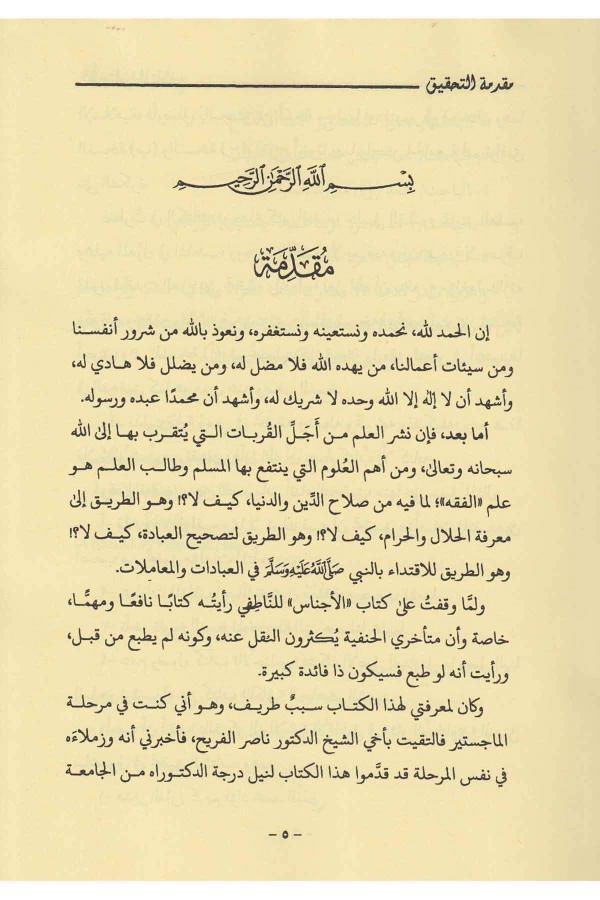 مقدمة التحقيق
بِسْمِ ٱللَّهِ ٱلرَّحْمَٰنِ ٱلرَّحِيمِ
مُقَدِّمَة
إن الحمد لله، نحمده ونستعينه ونستغفره، ونعوذ بالله من شرور أنفسنا
ومن سيئات أعمالنا، من يهده الله فلا مضل له، ومن يضلل فلا هادي له،
وأشهد أن لا إله إلا الله وحده لا شريك له، وأشهد أن محمدًا عبده ورسوله.
أما بعد، فإن نشر العلم من أَجَلِّ القُربات التي يُتقرب بها إلى الله
سبحانه وتعالى، ومن أهم العُلوم التي ينتفع بها المسلم وطالب العلم هو
علم «الفقه»؛ لما فيه من صلاح الدِّين والدنيا، كيف لا؟! وهو الطريق إلى
معرفة الحلال والحرام، كيف لا؟! وهو الطريق لتصحيح العبادة، كيف لا؟!
وهو الطريق للاقتداء بالنبي صَلَّى اللَّهُ عَلَيْهِ وَسَلَّمَ في العبادات والمعاملات.
ولمَّا وقفتُ على كتاب «الأجناس» للنَّاطِفي رأيتُه كتابًا نافعًا ومهمًّا،
خاصة وأن متأخري الحنفية يُكثرون النقل عنه، وكونه لم يطبع من قبل،
ورأيت أنه لو طبع فسيكون ذا فائدة كبيرة.
وكان لمعرفتي لهذا الكتاب سببٌ طريف، وهو أني كنت في مرحلة
الماجستير فالتقيت بأخي الشيخ الدكتور ناصر الفريح، فأخبرني أنه وزملاءَه
في نفس المرحلة قد قدَّموا هذا الكتاب لنيل درجة الدكتوراه من الجامعة
- ٥ -